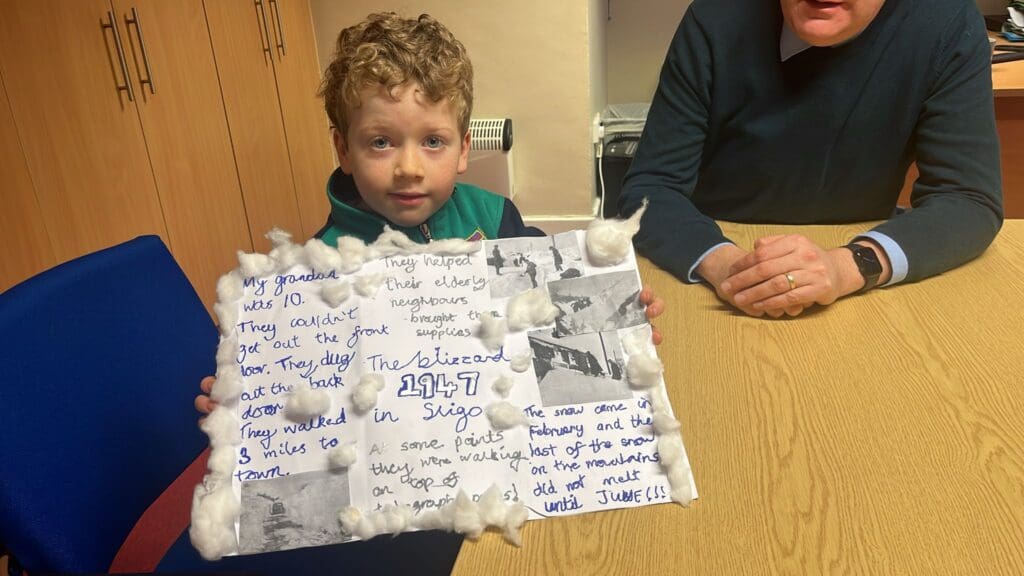 My grandad
was 10.
They couldn't
get out the front
door. They dug
out the back
door
They walked
3 miles to
town.
They helped
their elderly
neighbours
brought
supplies
The blizzard
1947
in Sligo
At some points
they were walking
on top of
The snow came in
February and the
last of the snow
on the mountains
did not melt
until JUNE!!!